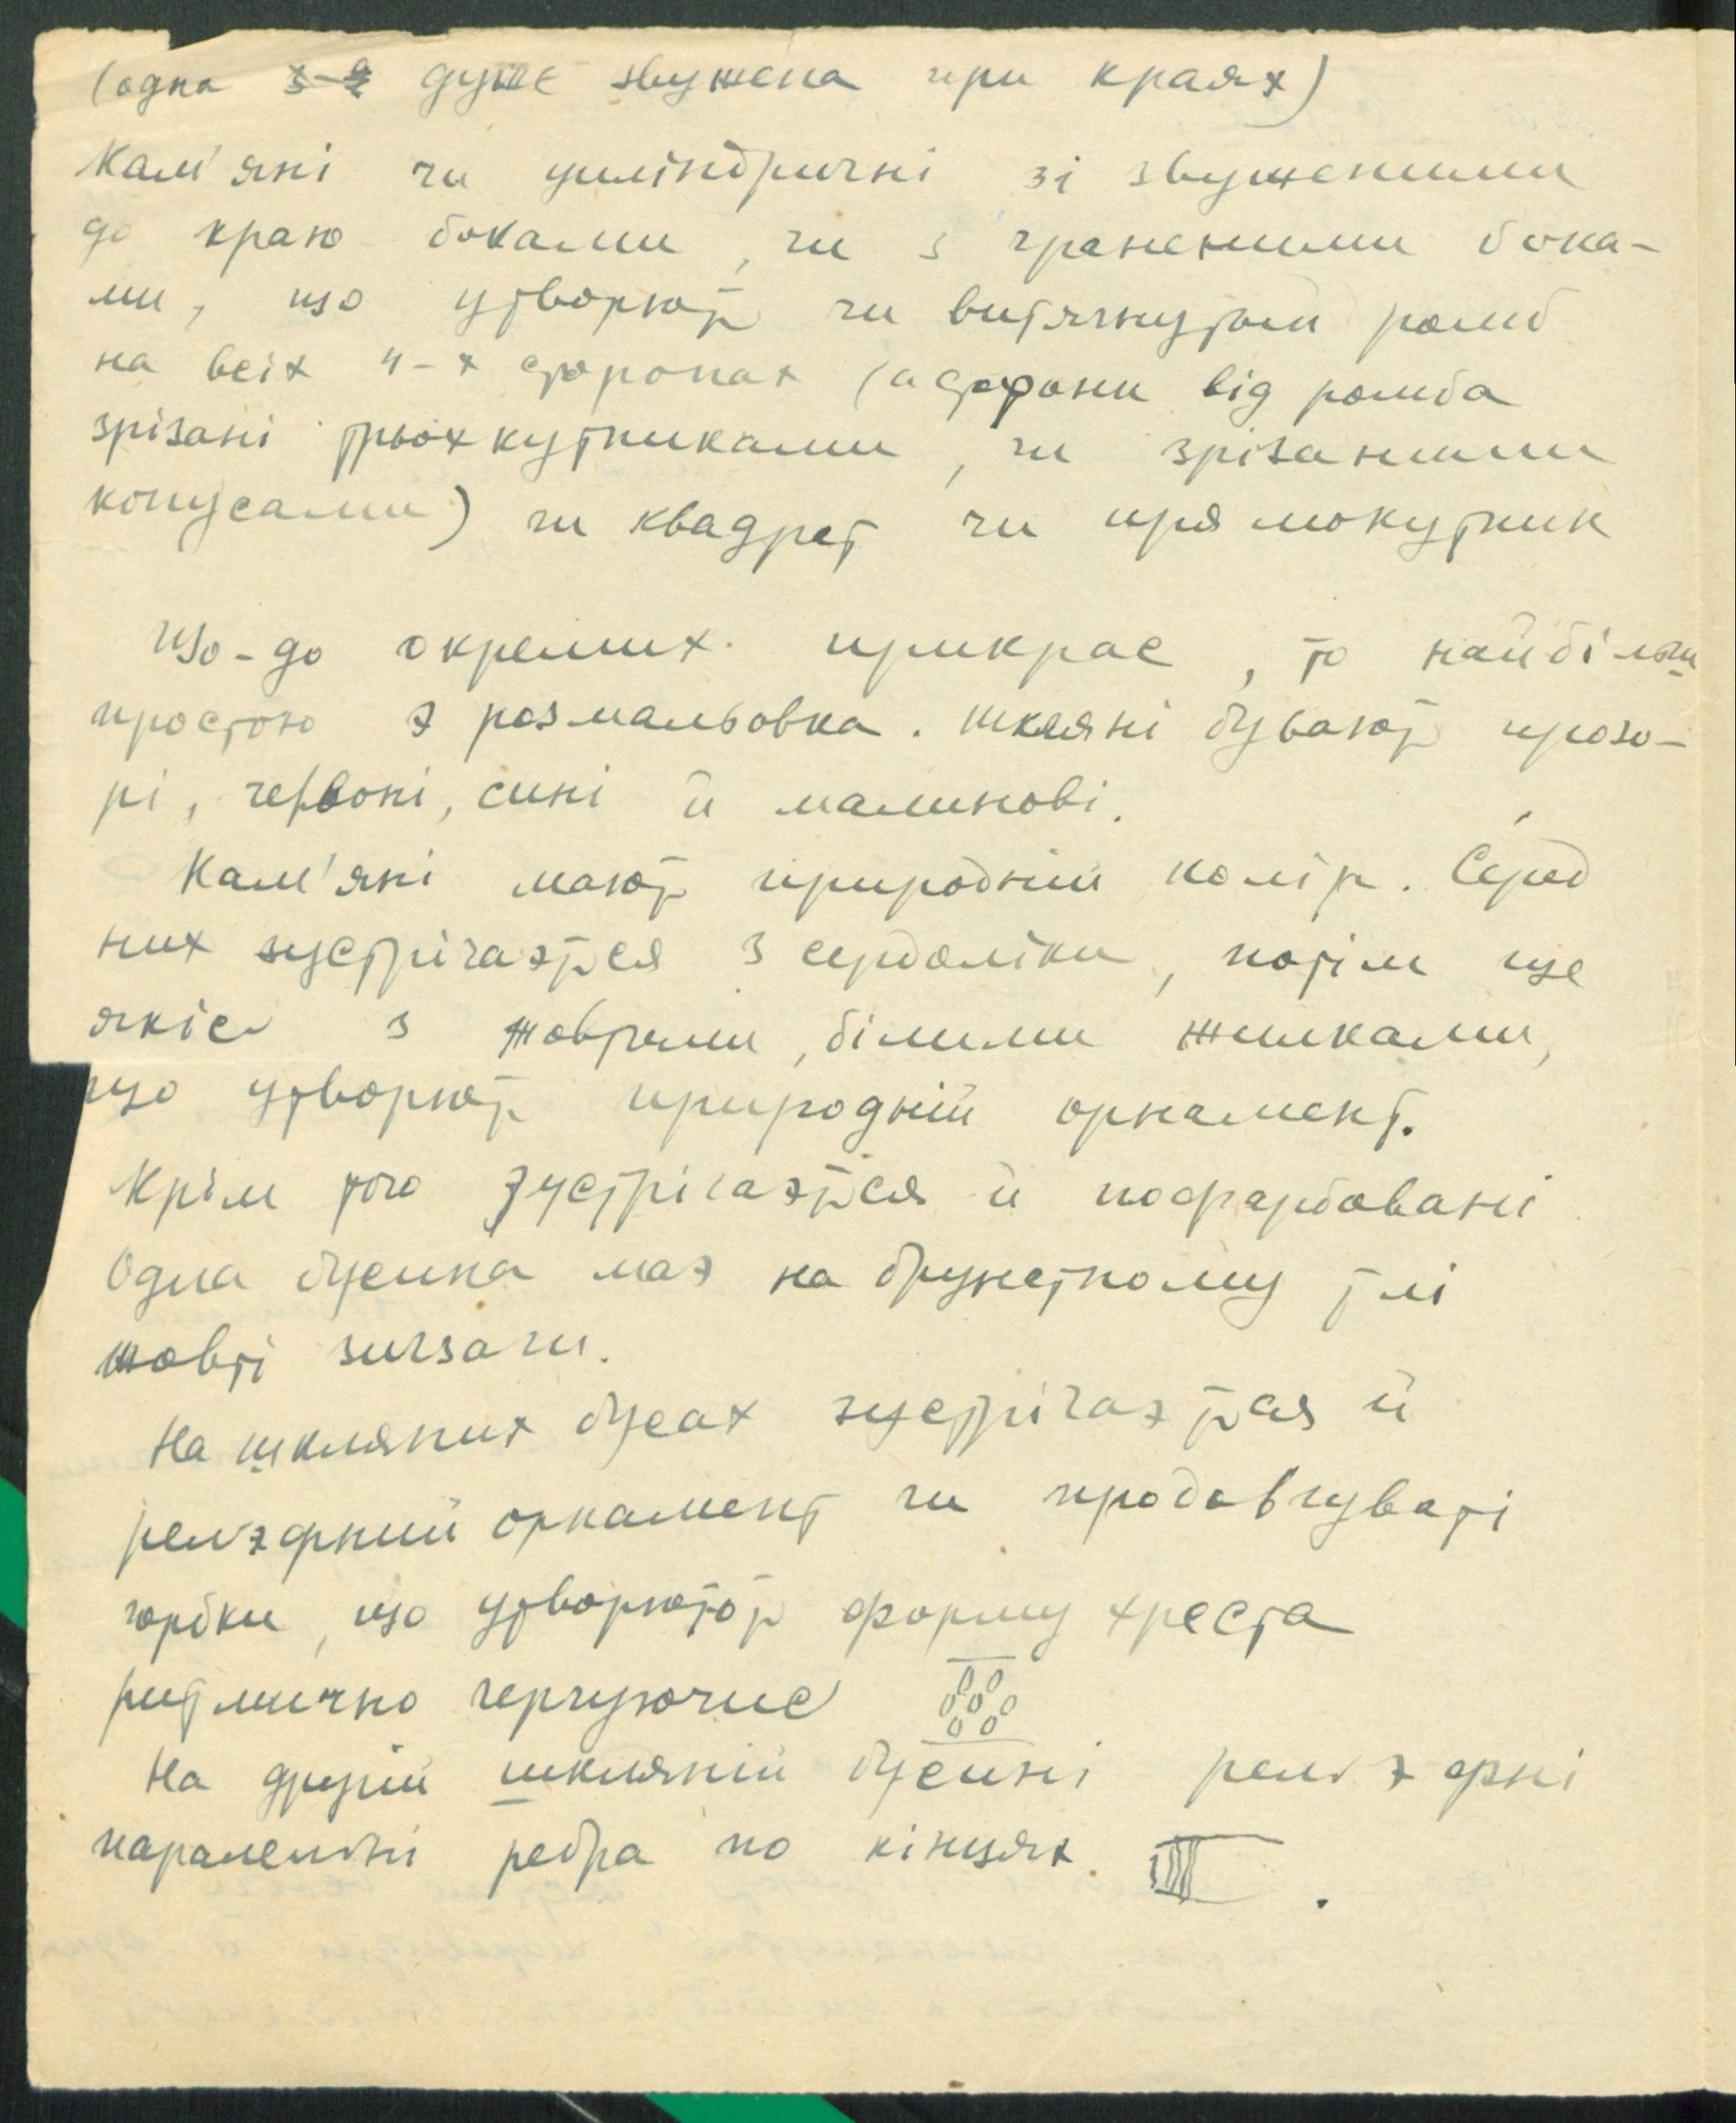 (одна дуже звужена при краях)
Кам'яні чи циліндричні зі звуженими
до краю боками, чи з граненими бока-
ми, що утворюють чи витягнутий ромб
на всіх 4-х сторонах (а сторони від ромба
зрізані трьохкутниками, чи зрізаними
конусами) чи квадрат чи прямокутник
Що-до окремих прикрас, то найбільш
простою є розмальовка. Шкляні бувають прозо-
рі, червоні, сині й малинові.
Кам'яні мають природній колір. Серед
них зустрічається з сердоліки, потім ще
якісь з жовтими, білими жилками,
що утворюють природній орнамент.
Крім того зустрічається й пофарбовані
Одна бусина має на брунатному тлі
жовті зигзаги.
На шкляних бусах зустрічається й
рельєфний орнамент чи продовгуваті
горбки, що утворюють форму хреста
ритмично чергуючись
На другій шкляній бусині рельєфні
паралельні ребра по кінцях.